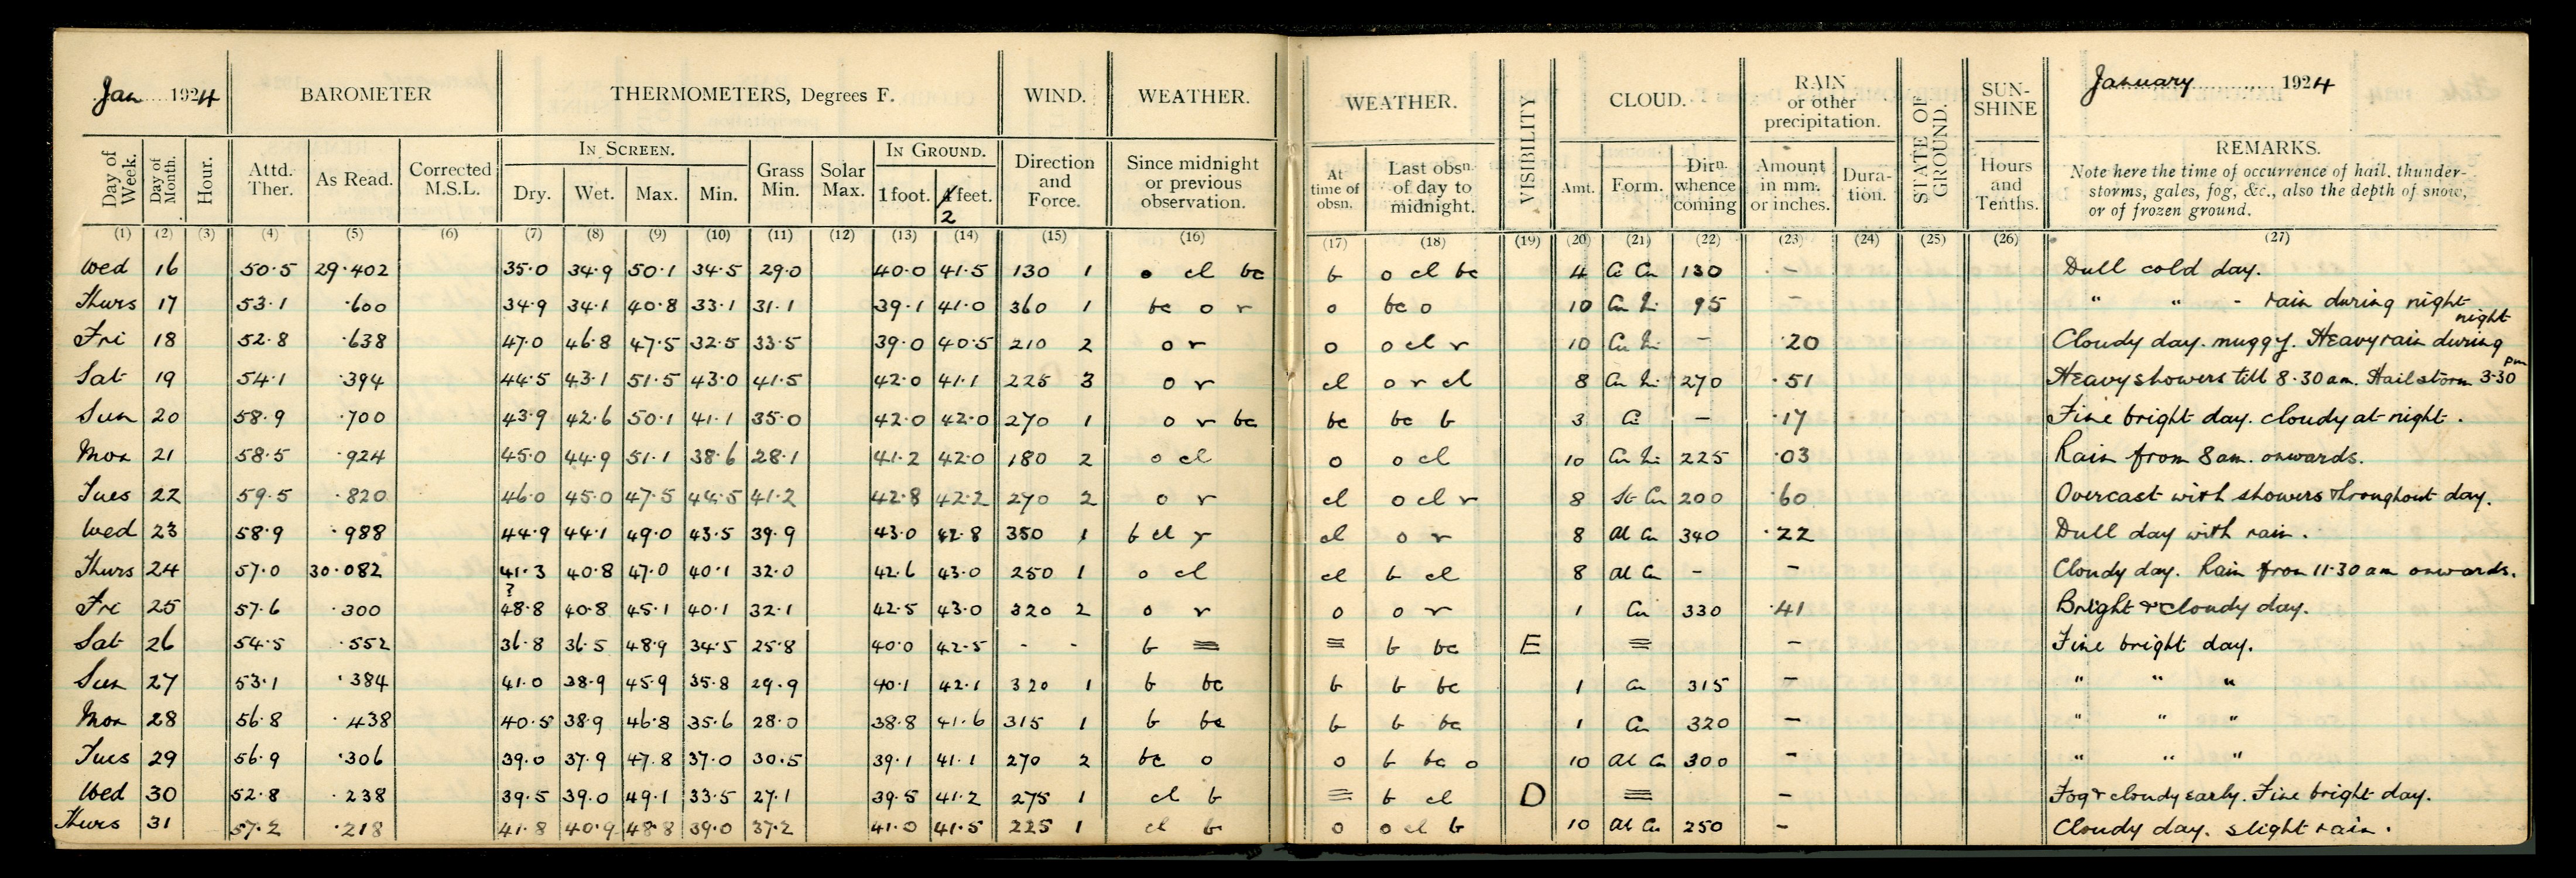 Jan 1924 BAROMETER THERMOMETERS, Degrees F. WIND. WEATHER. WEATHER. VISIBILITY CLOUD. RAIN or other precipitation. STATE OF GROUND. SUN-SHINE January 1924
Day of Week. Day of Month. Hour. Attd. Ther. As Read. Corrected M.S.L. IN SCREEN. Dry. Wet. Max. Min. Grass Min. Solar Max. IN GROUND. 1 foot. 4 feet. 2 Direction and Force. Since midnight or previous observation. At time of obsn. Last obsn. of day to midnight. Amt. Form. Dirn. whence coming Amount in mm. or inches. Duration. Hours and Tenths. REMARKS.
Note here the time of occurrence of hail, thunder-
storms, gales, fog, &c., also the depth of snow,
or of frozen ground.
(1) (2) (3) (4) (5) (6) (7) (8) (9) (10) (11) (12) (13) (14) (15) (16) (17) (18) (19) (20) (21) (22) (23) (24) (25) (26) (27)
Wed 16 50.5 29.402 35.0 34.9 50.1 34.5 29.0 40.0 41.5 130 1 o cl bc b o cl bc 4 Ci Cu 130 - Dull cold day.
Thurs 17 53.1 .600 34.9 34.1 40.8 33.1 31.1 39.1 41.0 360 1 bc o r o bc o 10 Cu Ni 95 - " " - rain during night
Fri 18 52.8 .638 47.0 46.8 47.5 32.5 33.5 39.0 40.5 210 2 o r o o cl r 10 Cu Ni - .20 Cloudy day. muggy. Heavy rain during night
Sat 19 54.1 .394 44.5 43.1 51.5 43.0 41.5 42.0 41.1 225 3 o r cl o r cl 8 Cu Ni 270 .51 Heavy showers till 8.30 am. Hail storm 3.30 pm
Sun 20 58.9 .700 43.9 42.6 50.1 41.1 35.0 42.0 42.0 270 1 o r bc bc bc b 3 Ci - .17 Fine bright day. cloudy at night.
Mon 21 58.5 .924 45.0 44.9 51.1 38.6 28.1 41.2 42.0 180 2 o cl o o cl 10 Cu Ni 225 .03 Rain from 8 am. onwards.
Tues 22 59.5 .820 46.0 45.0 47.5 44.5 41.2 42.8 42.2 270 2 o r cl o cl r 8 St Cu 200 .60 Overcast with showers throughout day.
Wed 23 58.9 .988 44.9 44.1 49.0 43.5 39.9 43.0 42.8 350 1 b cl r cl o r 8 Al Cu 340 .22 Dull day with rain.
Thurs 24 57.0 30.082 41.3 40.8 47.0 40.1 32.0 42.6 43.0 250 1 o cl cl b cl 8 Al Cu - - Cloudy day. Rain from 11.30 am onwards.
Fri 25 57.6 .300 ? 48.8 40.8 45.1 40.1 32.1 42.5 43.0 320 2 o r o o r 1 Cu 330 .41 Bright & cloudy day.
Sat 26 54.5 .552 36.8 36.5 48.9 34.5 25.8 40.0 42.5 - - b ≡ ≡ b bc E ≡ - Fine bright day.
Sun 27 53.1 .384 41.0 38.9 45.9 35.8 29.9 40.1 42.1 320 1 b bc b b bc 1 Cu 315 - " " "
Mon 28 56.8 .438 40.5 38.9 46.8 35.6 28.0 38.8 41.6 315 1 b bc b b bc 1 Cu 320 - " " "
Tues 29 56.9 .306 39.0 37.9 47.8 37.0 30.5 39.1 41.1 270 2 bc o o b bc o 10 Al Cu 300 - " " "
Wed 30 52.8 .238 39.5 39.0 49.1 33.5 27.1 39.5 41.2 275 1 cl b ≡ b cl D ≡ - Fog & cloudy early. Fine bright day.
Thurs 31 57.2 .218 41.8 40.9 48.8 39.0 37.2 41.0 41.5 225 1 cl b o o cl b 10 Al Cu 250 - Cloudy day. slight rain.